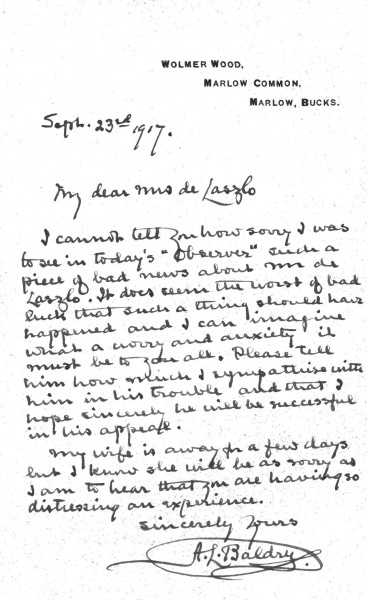 WOLMER WOOD,
MARLOW COMMON,
MARLOW, BUCKS.
Sept. 23rd 1917.
My dear Mrs de Laszlo
I cannot tell you how sorry I was
to see in today's "Observer" such a
piece of bad news about Mr de
Laszlo. It does seem the worst of bad
luck that such a thing should have
happened and I can imagine
what a worry and anxiety it
must be to you all. Please tell
him how much I sympathise with
him in his trouble and that I
hope sincerely he will be successful
in his appeal.
My wife is away for a few days
but I know she will be as sorry as
I am to hear that you are having so
distressing an experience.
Sincerely Yours
A.L. Baldry.